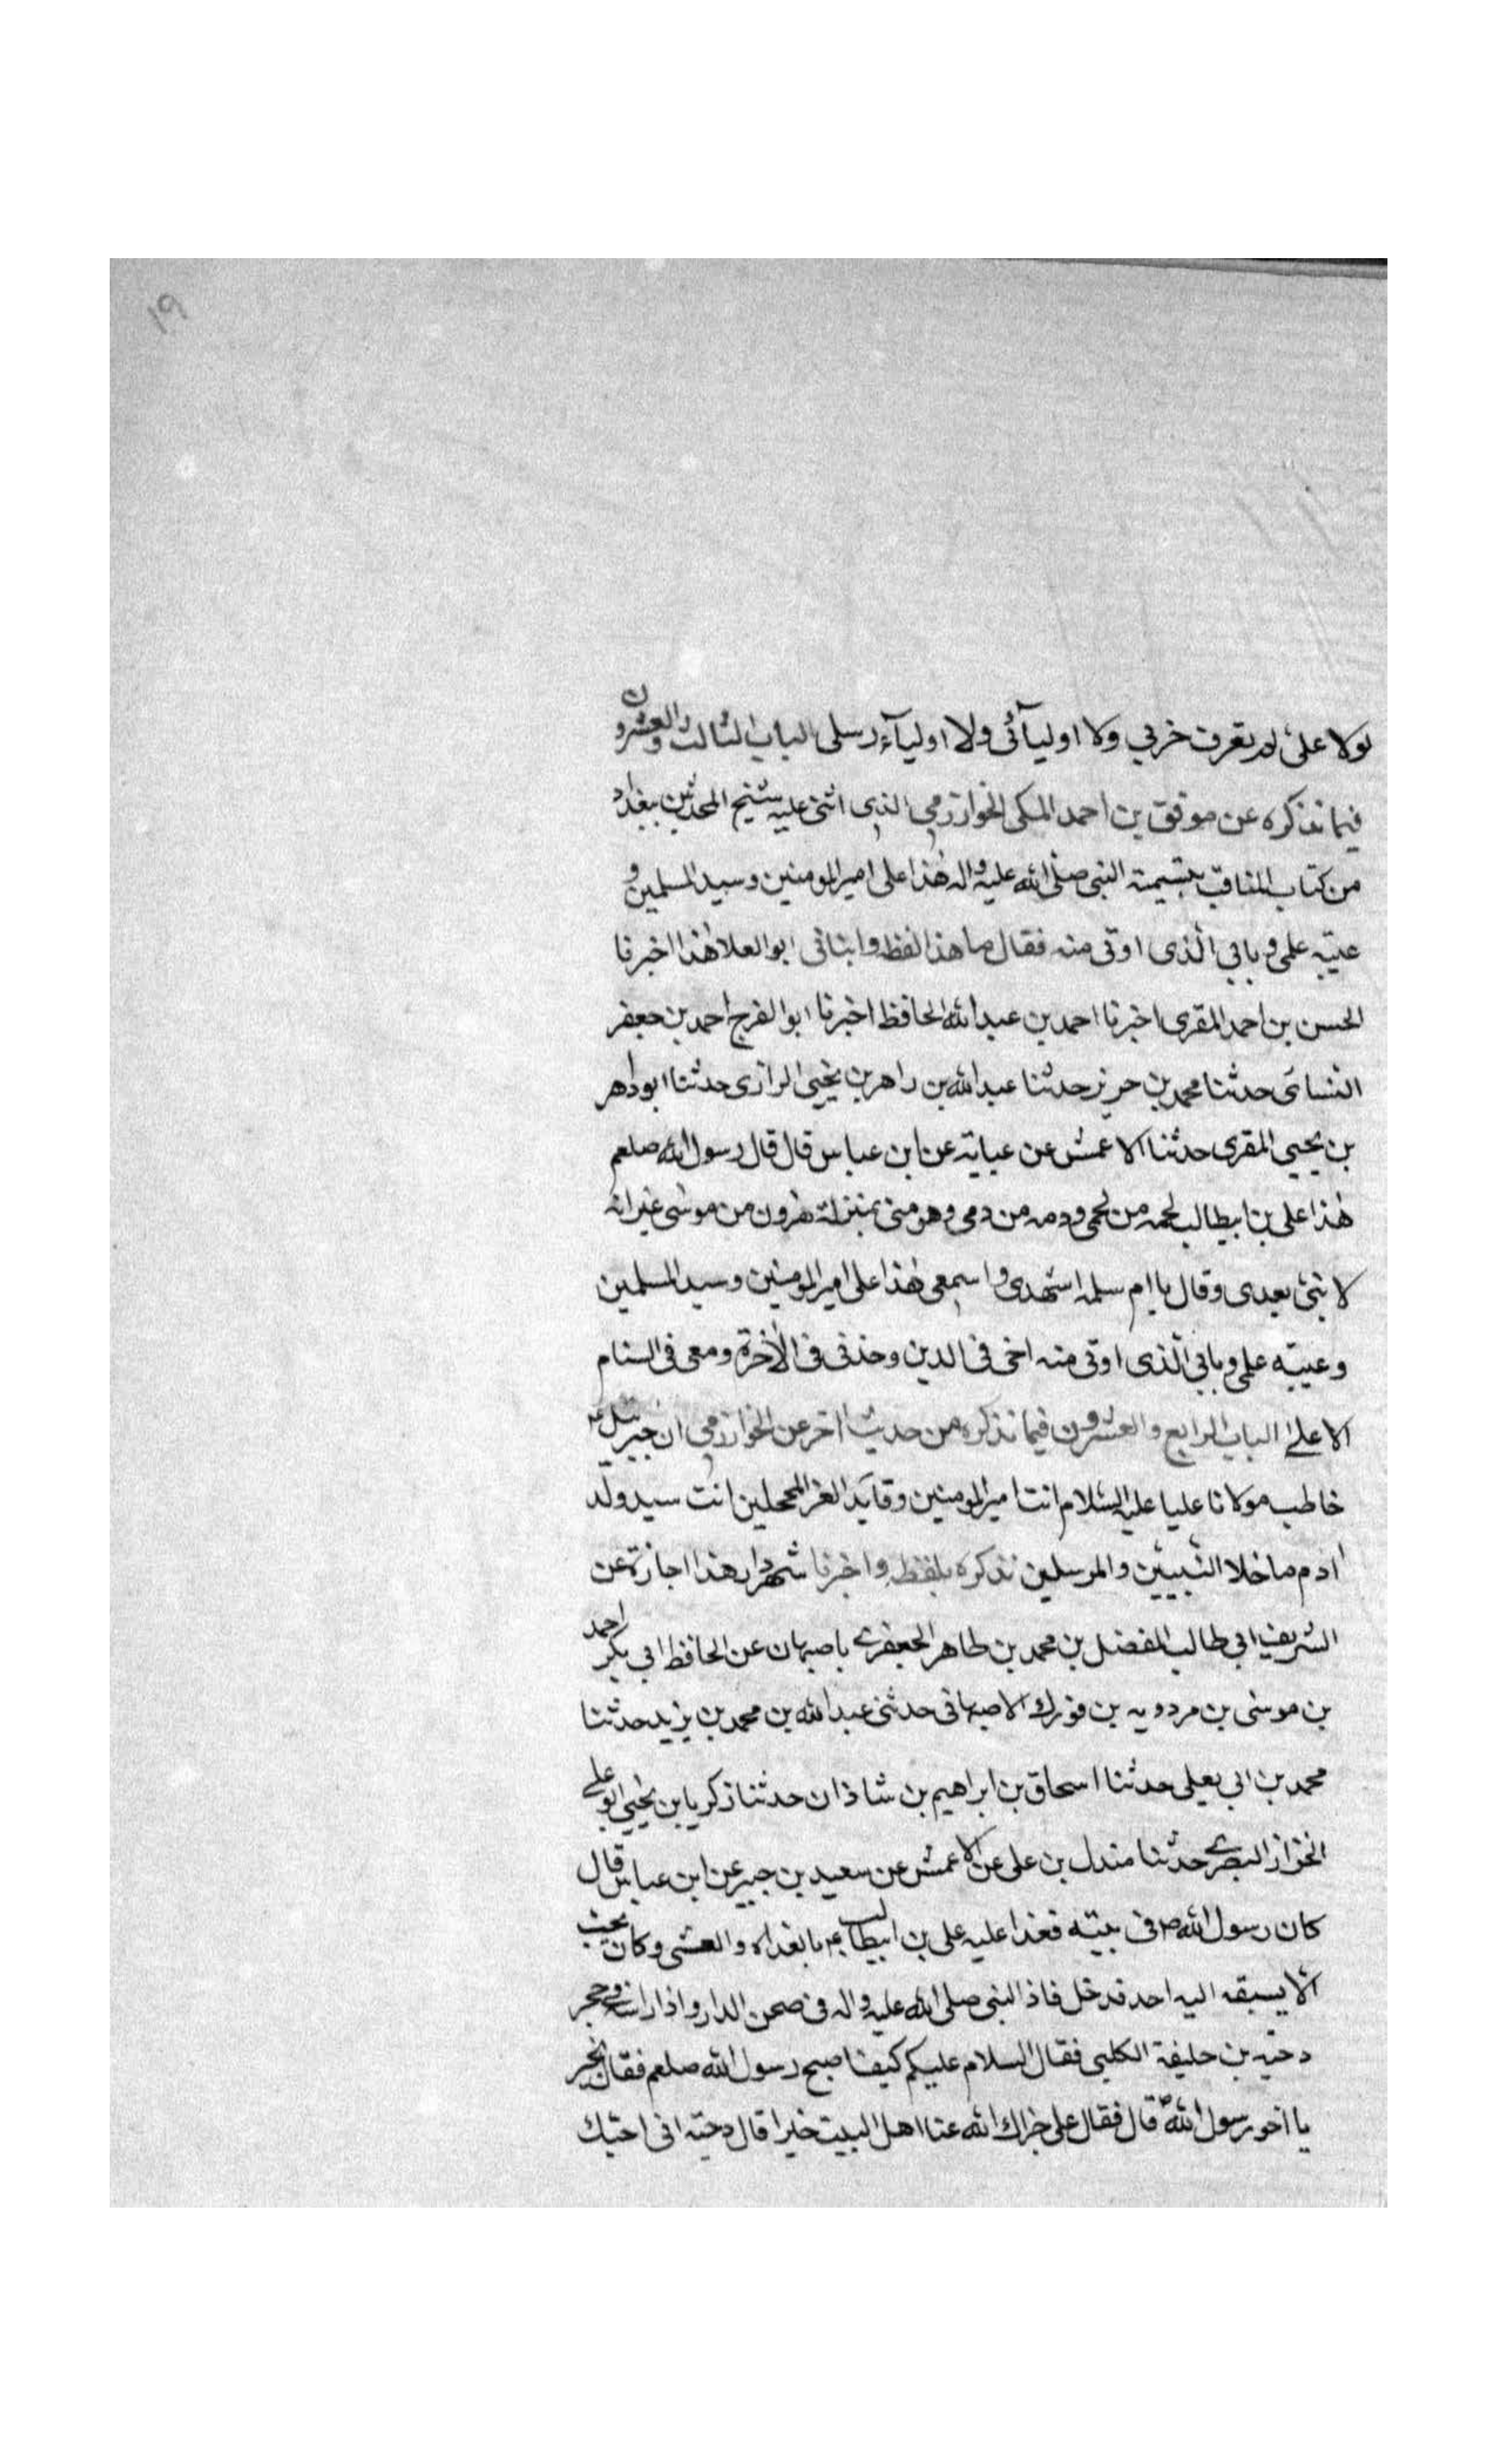 ١٩
لولا على لم تعرف حزبي ولا اوليآئى ولا اوليآء رسلى الباب الثالث والعشرون
فيما نذكره عن موفق بن احمد المكى الخوارزمي الذى اثنى عليه شيخ المحدثين ببغداد
من كتاب المناقب بتسيمته النبى صلى الله عليه واله هذا على امير المومنين وسيد المسلمين و
عيبة علمى وبابي الذى اوتى منه فقال ما هذا لفظه وانبانى ابو العلا هذا اخبرنا
الحسن بن احمد المقرى اخبرنا احمد بن عبدالله الحافظ اخبرنا ابو الفرج احمد بن جعفر
النسائى حدثنا محمد بن جرير حدثنا عبدالله بن داهر بن يحيى الرازى حدثنا ابو داهر
بن يحيى المقرى حدثنا الاعمش عن عباية عن ابن عباس قال قال رسول الله صلعم
هذا على بن ابيطالب لحمه من لحمى ودمه من دمى وهو منى بمنزلة هرون من موسى غير انه
لا نبى بعدى وقال يا ام سلمه اشهدى واسمعى هذا على امير المومنين وسيد المسلمين
وعيبته علمى وبابي الذى اوتى منه اخى فى الدين وخدنى فى الآخرة ومعى فى السنام
الاعلى الباب الرابع والعشرون فيما نذكره من حديث اخر عن الخوارزمي ان جبرئيل ع
خاطب مولانا عليا عليه السلام انت امير المومنين وقايد الغر المحجلين انت سيد ولد
ادم ما خلا النبيين والمرسلين نذكره بلفظه واخبرنا شهردار هذا اجازة عن
الشريف ابى طالب المفضل بن محمد بن طاهر الجعفرى باصبهان عن الحافظ ابى بكر احمد
بن موسى بن مردويه بن فورك الاصبهانى حدثنى عبدالله بن محمد بن يزيد حدثنا
محمد بن ابى يعلى حدثنا اسحاق بن ابراهيم بن شاذان حدثنا زكريا بن يحيى ابو على
الخزاز البصرى حدثنا مندل بن على عن الاعمش عن سعيد بن جبير عن ابن عباس قال
كان رسول الله ص فى بيته فغدا عليه على بن ابيطالب ع بالغداه والعشى وكان يحب
الا يسبقه اليه احد فدخل فاذا النبى صلى الله عليه واله فى صحن الدار واذا راسه فى حجر
دحيه بن خليفة الكلبى فقال السلام عليكم كيف اصبح رسول الله صلعم فقال بخير
يا اخو رسول الله ص قال فقال على جزاك الله عنا اهل البيت خيرا قال دحيته انى احبك